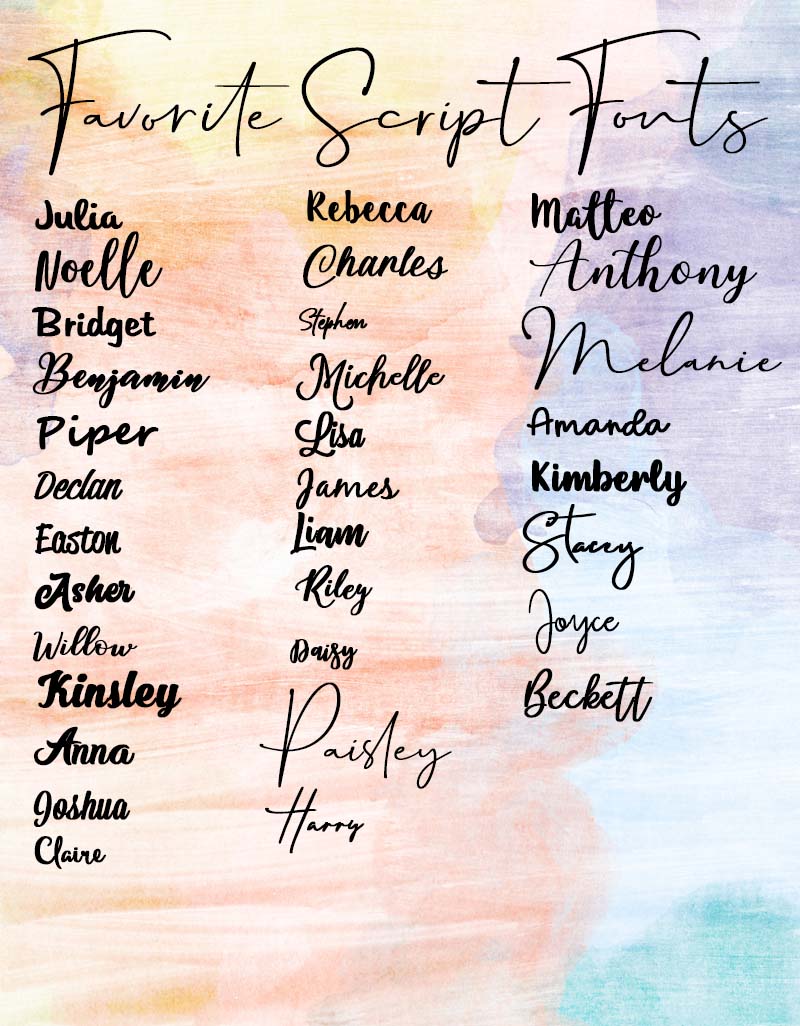 Favorite Script Fonts
Julia
Noelle
Bridget
Benjamin
Piper
Declan
Easton
Asher
Willow
Kinsley
Anna
Joshua
Claire
Rebecca
Charles
Stephen
Michelle
Lisa
James
Liam
Riley
Daisy
Paisley
Harry
Matteo
Anthony
Melanie
Amanda
Kimberly
Stacey
Joyce
Beckett